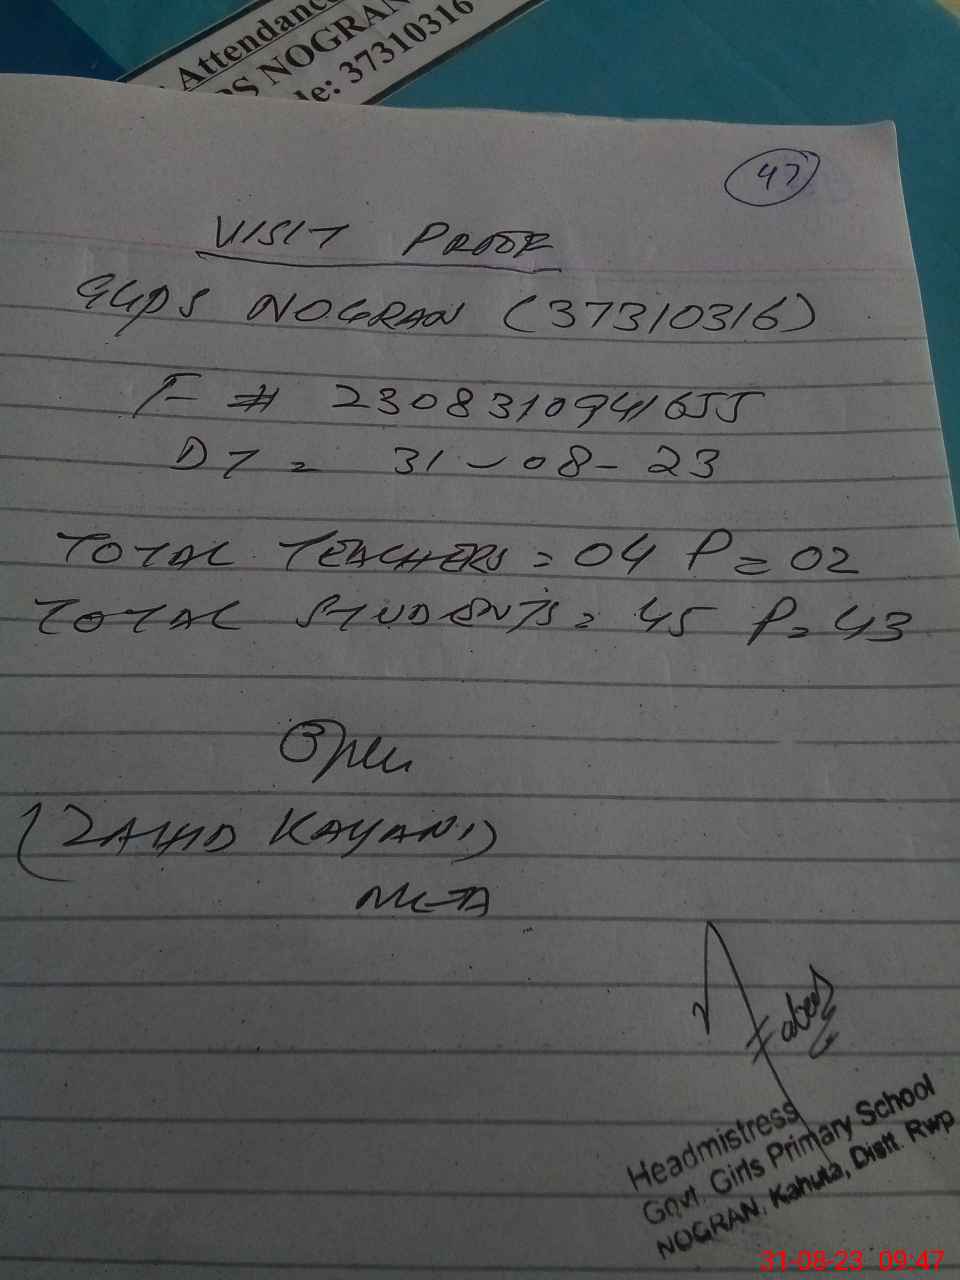 Attendance
PS NOGRAN
de: 37310316
47
VISIT PROOF
GGPS NOGRAN (37310316)
F # 2308310941655
DT = 31-08-23
TOTAL TEACHERS = 04 P = 02
TOTAL STUDENTS = 45 P = 43
Open
(ZAHID KAYANI)
MEA
Headmistress
Govt. Girls Primary School
NOGRAN, Kahuta, Distt. Rwp
31-08-23 09:47